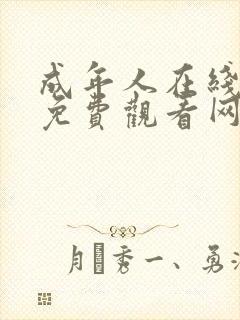 成年人在线
免費觀看网
月秀一、勇